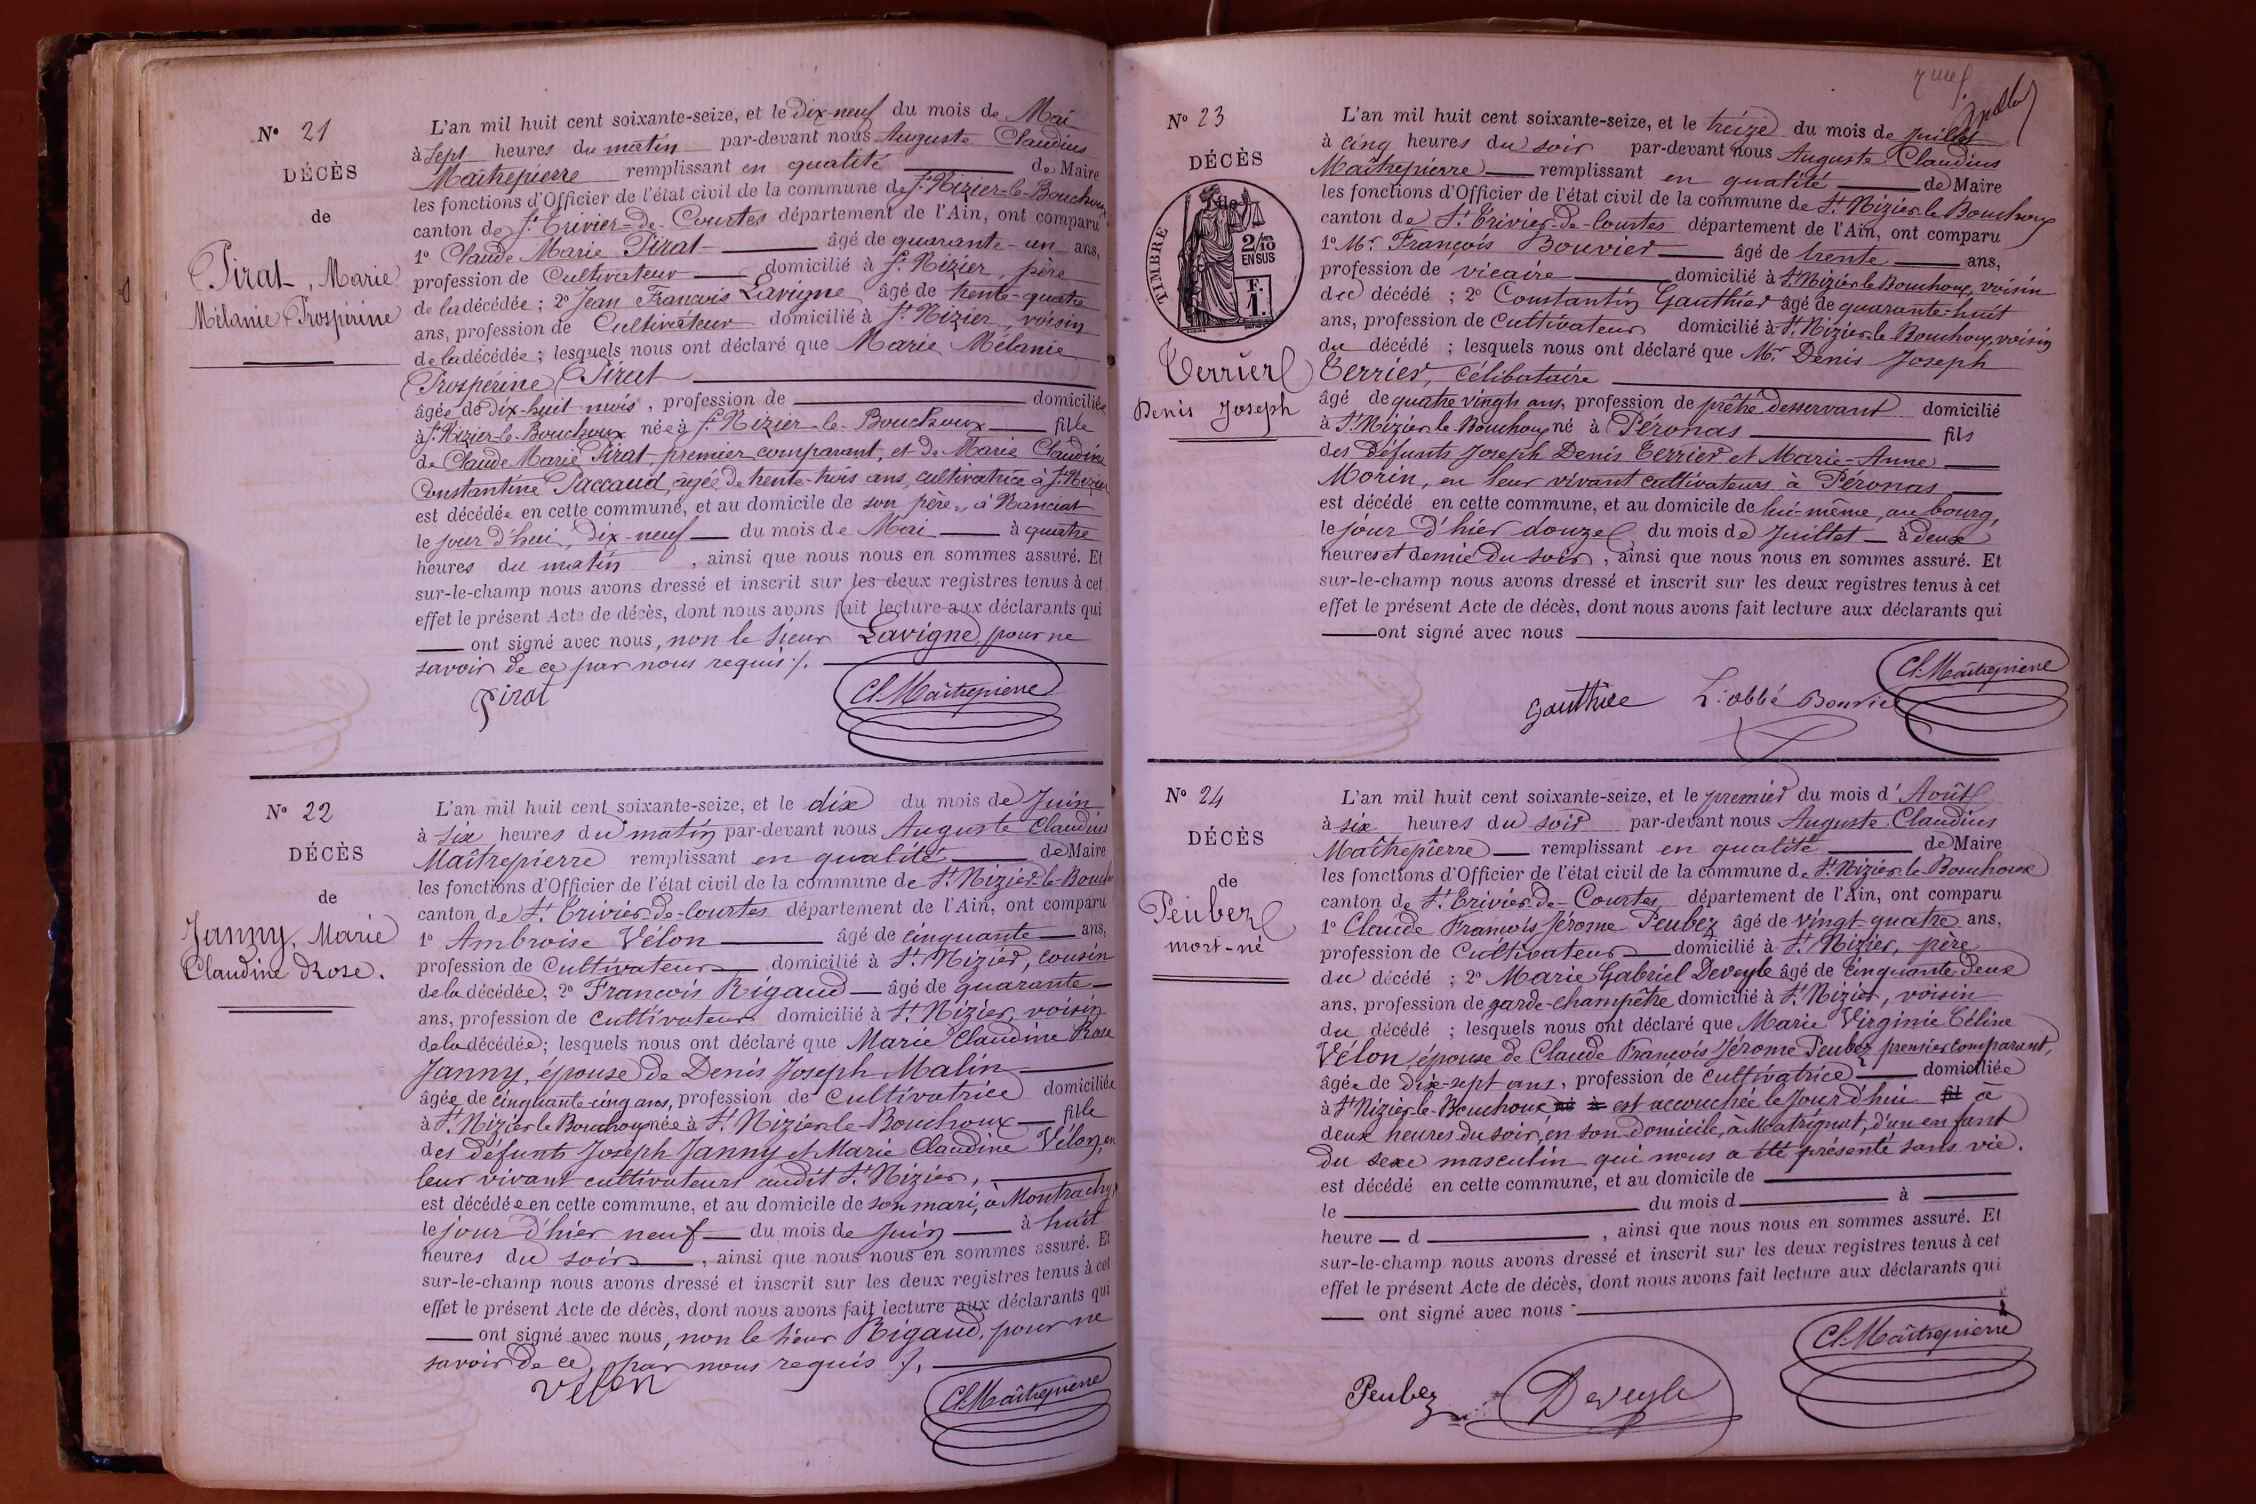 N° 21
DÉCÈS
de
Pirat, Marie
Mélanie Prospérine
L'an mil huit cent soixante-seize, et le dix-neuf du mois de Mai
à sept heures du matin par-devant nous Auguste Claudius
Maîtrepierre remplissant en qualité de Maire
les fonctions d'Officier de l'état civil de la commune de St Nizier-le-Bouchoux
canton de St Trivier-de-Courtes département de l'Ain, ont comparu
1° Claude Marie Pirat âgé de quarante-un ans,
profession de Cultivateur domicilié à St Nizier, père
de la décédée ; 2° Jean François Lavigne âgé de trente-quatre
ans, profession de Cultivateur domicilié à St Nizier, voisin
de la décédée ; lesquels nous ont déclaré que Marie Mélanie
Prospérine Pirat
âgée de dix-huit mois, profession de domiciliée
à St Nizier-le-Bouchoux née à St Nizier-le-Bouchoux fille
de Claude Marie Pirat, premier comparant, et de Marie Claudine
Constantine Paccaud, agée de trente-trois ans, cultivatrice à St Nizier
est décédée en cette commune, et au domicile de son père, à Nanciat
le jour d'hui, dix-neuf du mois de Mai à quatre
heures du matin, ainsi que nous nous en sommes assuré. Et
sur-le-champ nous avons dressé et inscrit sur les deux registres tenus à cet
effet le présent Acte de décès, dont nous avons fait lecture aux déclarants qui
ont signé avec nous, non le sieur Lavigne, pour ne
savoir de ce par nous requis ./.
Pirat Cl. Maîtrepierre
N° 22
DÉCÈS
de
Janny, Marie
Claudine Rose.
L'an mil huit cent soixante-seize, et le dix du mois de Juin
à six heures du matin par-devant nous Auguste Claudius
Maîtrepierre remplissant en qualité de Maire
les fonctions d'Officier de l'état civil de la commune de St Nizier-le-Bouch
canton de St Trivier-de-Courtes département de l'Ain, ont comparu
1° Ambroise Vélon âgé de cinquante ans,
profession de Cultivateur domicilié à St Nizier, cousin
de la décédée ; 2° François Rigaud âgé de quarante
ans, profession de cultivateur domicilié à St Nizier, voisin
de la décédée ; lesquels nous ont déclaré que Marie Claudine Rose
Janny, épouse de Denis Joseph Malin
âgée de cinquante-cinq ans, profession de Cultivatrice domiciliée
à St Nizier le Bouchoux née à St Nizier-le-Bouchoux fille
des défunts Joseph Janny et Marie Claudine Vélon, en
leur vivant cultivateurs audit St Nizier,
est décédée en cette commune, et au domicile de son mari, à Montrachy
le jour d'hier neuf du mois de Juin à huit
heures du soir, ainsi que nous nous en sommes assuré. Et
sur-le-champ nous avons dressé et inscrit sur les deux registres tenus à cet
effet le présent Acte de décès, dont nous avons fait lecture aux déclarants qui
ont signé avec nous, non le sieur Rigaud, pour ne
savoir de ce, par nous requis ./.
Vélon
Cl. Maîtrepierre
N° 23
DÉCÈS
de
TIMBRE
2/10
EN SUS
F.
1.
Terrier
Denis Joseph
L'an mil huit cent soixante-seize, et le treize du mois de Juillet
à cinq heures du soir par-devant nous Auguste Claudius
Maîtrepierre remplissant en qualité de Maire
les fonctions d'Officier de l'état civil de la commune de St Nizier le Bouchoux
canton de St Trivier-de-Courtes département de l'Ain, ont comparu
1° Mr François Bouvier âgé de trente ans,
profession de vicaire domicilié à St Nizier le Bouchoux, voisin
du décédé ; 2° Constantin Gauthier âgé de quarante-huit
ans, profession de Cultivateur domicilié à St Nizier-le-Bouchoux, voisin
du décédé ; lesquels nous ont déclaré que Mr Denis Joseph
Terrier, célibataire
âgé de quatre vingts ans, profession de prêtre desservant domicilié
à St Nizier-le-Bouchoux né à Péronas fils
des défunts Joseph Denis Terrier et Marie-Anne
Morin, en leur vivant cultivateurs à Péronas
est décédé en cette commune, et au domicile de lui-même, au bourg,
le jour d'hier douze du mois de Juillet à deux
heures et demie du soir, ainsi que nous nous en sommes assuré. Et
sur-le-champ nous avons dressé et inscrit sur les deux registres tenus à cet
effet le présent Acte de décès, dont nous avons fait lecture aux déclarants qui
ont signé avec nous
Gauthier L'abbé Bouvier Cl. Maîtrepierre
N° 24
DÉCÈS
de
Peubez
mort-né
L'an mil huit cent soixante-seize, et le premier du mois d'Août
à six heures du soir par-devant nous Auguste Claudius
Maîtrepierre remplissant en qualité de Maire
les fonctions d'Officier de l'état civil de la commune de St Nizier-le-Bouchoux
canton de St Trivier-de-Courtes département de l'Ain, ont comparu
1° Claude François Jérome Peubez âgé de vingt-quatre ans,
profession de Cultivateur domicilié à St Nizier, père
du décédé ; 2° Marie Gabriel Deveyle âgé de cinquante deux
ans, profession de garde-champêtre domicilié à St Nizier, voisin
du décédé ; lesquels nous ont déclaré que Marie Virginie Céline
Vélon, épouse de Claude François Jérome Peubez premier comparant,
âgée de dix-sept ans, profession de cultivatrice domiciliée
à St Nizier-le-Bouchoux né à est accouchée le jour d'hui fil à
deux heures du soir, en son domicile, à Matrignat, d'un enfant
du sexe masculin qui nous a été présenté sans vie.
est décédé en cette commune, et au domicile de
le du mois d à
heure d , ainsi que nous nous en sommes assuré. Et
sur-le-champ nous avons dressé et inscrit sur les deux registres tenus à cet
effet le présent Acte de décès, dont nous avons fait lecture aux déclarants qui
ont signé avec nous
Cl. Maîtrepierre
Peubez Deveyle